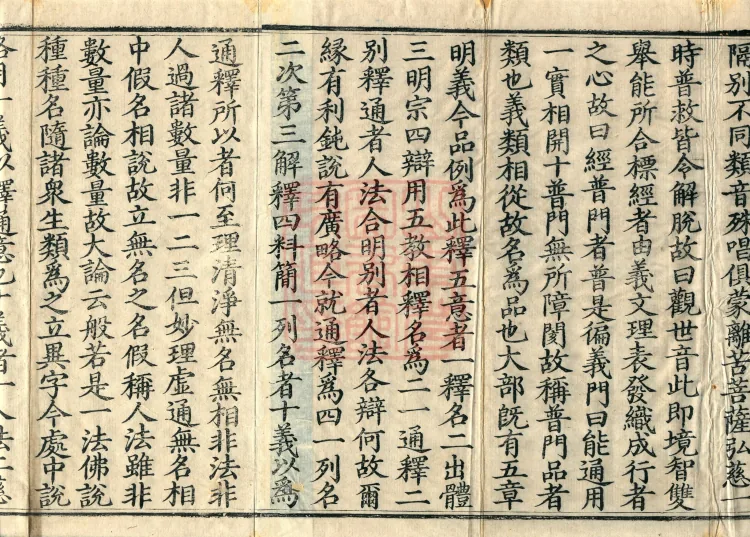 隔別不同類音殊唱俱蒙離苦菩薩弘慈一
時普救皆令解脫故曰觀世音此即境智雙
舉能所合標經者由義文理表發織成行者
之心故曰經普門者普是徧義門曰能通用
一實相開十普門無所障閡故稱普門品者
類也義類相從故名爲品也大部旣有五章
明義今品例爲此釋五意者一釋名二出體
三明宗四辯用五教相釋名爲二一通釋二
別釋通者人法合明別者人法各辯何故爾
緣有利鈍說有廣略今就通釋爲四一列名
二次第三解釋四料簡一列名者十義以爲
通釋所以者何至理清淨無名無相非法非
人過諸數量非一二三但妙理虛通無名相
中假名相說故立無名之名假稱人法雖非
數量亦論數量故大論云般若是一法佛說
種種名隨諸衆生類爲之立異字今處中說
略用十義以釋通意也十義者一人法二慈